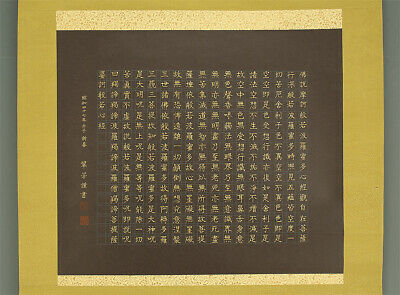 佛説摩訶般若波羅蜜多心經觀自在菩薩
行深般若波羅蜜多時照見五蘊皆空度一
切苦厄舍利子色不異空空不異色色即是
空空即是色受想行識亦復如是舍利子是
諸法空想不生不滅不垢不淨不增不減是
故空中無色無受想行識無眼耳鼻舌身意
無色聲香味觸法無眼界乃至無意識界無
無明亦無無明盡乃至無老死亦無老死盡
無苦集滅道無智亦無得以無所得故菩提
薩埵依般若波羅蜜多故心無罣礙無罣礙
故無有恐怖遠離一切顛倒夢想究竟涅槃
三世諸佛依般若波羅蜜多故得阿耨多羅
三藐三菩提故知般若波羅蜜多是大神呪
是大明呪是無上呪是無等等呪能除一切
苦真實不虛故説般若波羅蜜多呪即説呪
曰羯諦羯諦波羅羯諦波羅僧羯諦菩提薩
婆訶般若心經
昭和 新春
謹書